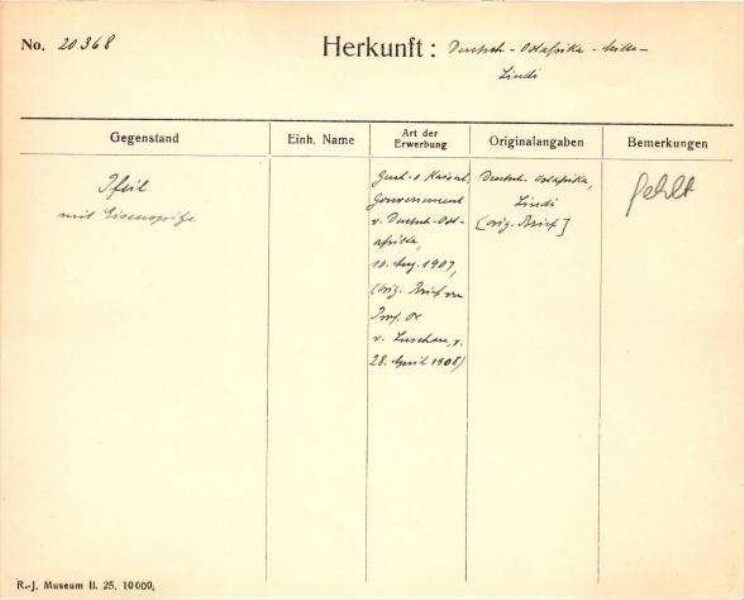 No. 20368
Herkunft: Deutsch-Ostafrika -
Lindi
Gegenstand
Einh. Name
Art der Erwerbung
Originalangaben
Bemerkungen
Pfeil
mit Eisenspitze
Gesch. v. Kaiserl.
Gouvernement
v. Deutsch-Ost-
afrika,
10. Aug. 1907,
(orig. Brief von
Prof. Dr
v. Luschan, v.
28. April 1908)
Deutsch-Ostafrika,
Lindi
[orig. Brief]
fehlt
R.-J. Museum II. 25. 10000.